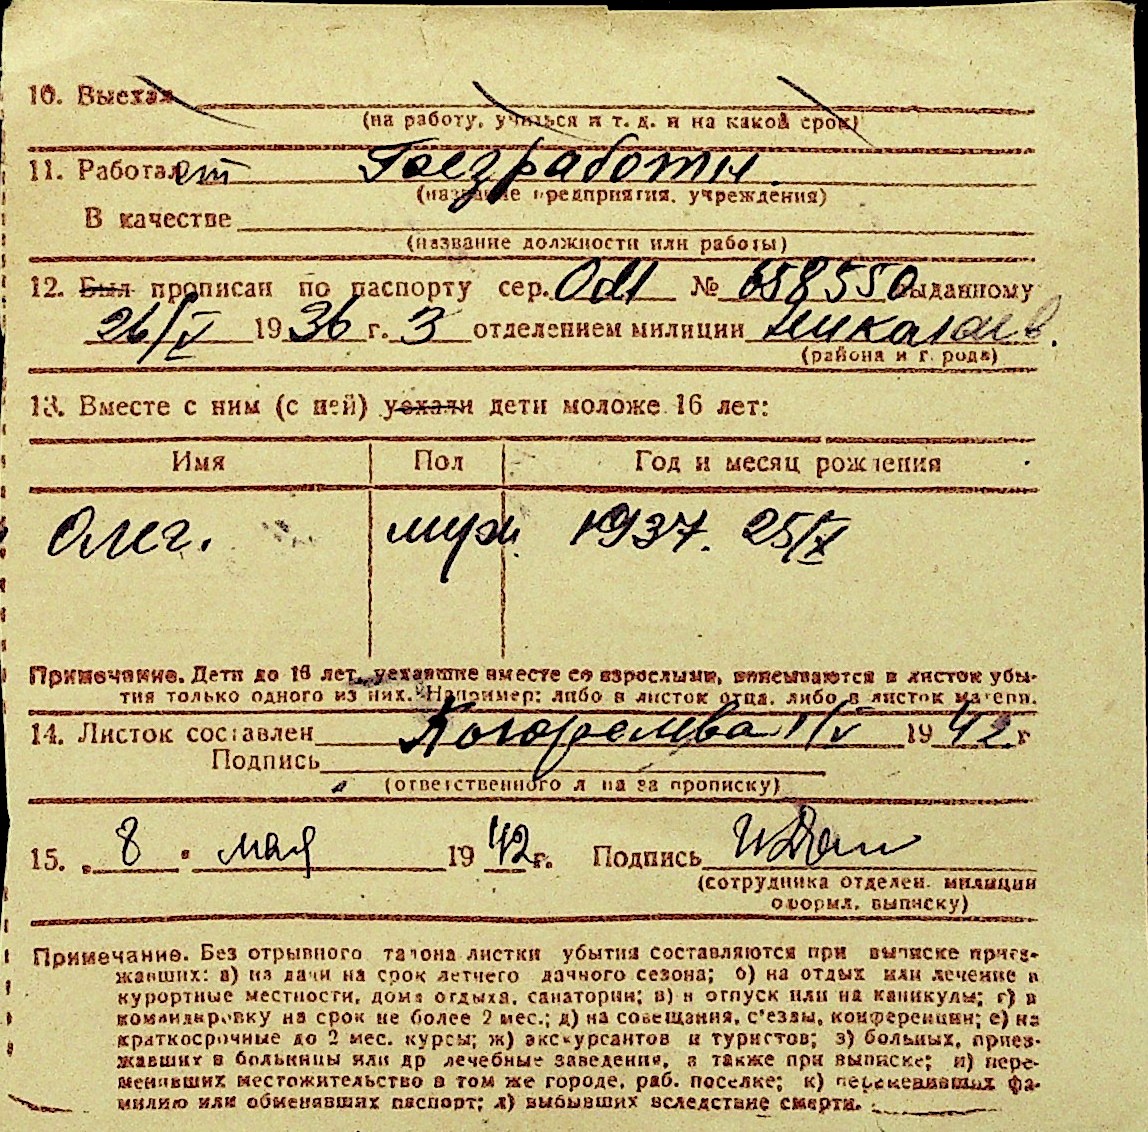 10. Выехал
(на работу, учиться и т. д. и на какой срок)
11. Работает Без работы.
(название предприятия, учреждения)
В качестве
(название должности или работы)
12. Был прописан по паспорту сер. № 658550 выданному
26/V 1936 г. 3 отделением милиции Николаев.
(района и города)
13. Вместе с ним (с ней) уехали дети моложе 16 лет:
Имя Пол Год и месяц рождения
Олег. муж. 1937. 25/X
Примечание. Дети до 16 лет, уехавшие вместе со взрослыми, вписываются в листок убы-
тия только одного из них. Например: либо в листок отца, либо в листок матери.
14. Листок составлен 1/V 1942 г
Подпись
(ответственного л на за прописку)
15. „ 8 " мая 1942 г. Подпись
(сотрудника отделен. милиции
оформл. выписку)
Примечание. Без отрывного талона листки убытия составляются при выписке приез-
жавших: а) на дачи на срок летнего дачного сезона; б) на отдых или лечение в
курортные местности, дома отдыха, санатории; в) в отпуск или на каникулы; г) в
командировку на срок не более 2 мес.; д) на совещания, с'езды, конференции; е) на
краткосрочные до 2 мес. курсы; ж) экскурсантов и туристов; з) больных, приез-
жавших в больницы или др лечебные заведения, а также при выписке; и) пере-
менивших местожительство в том же городе, раб. поселке; к) переменивших фа-
милию или обменявших паспорт; л) выбывших вследствие смерти.